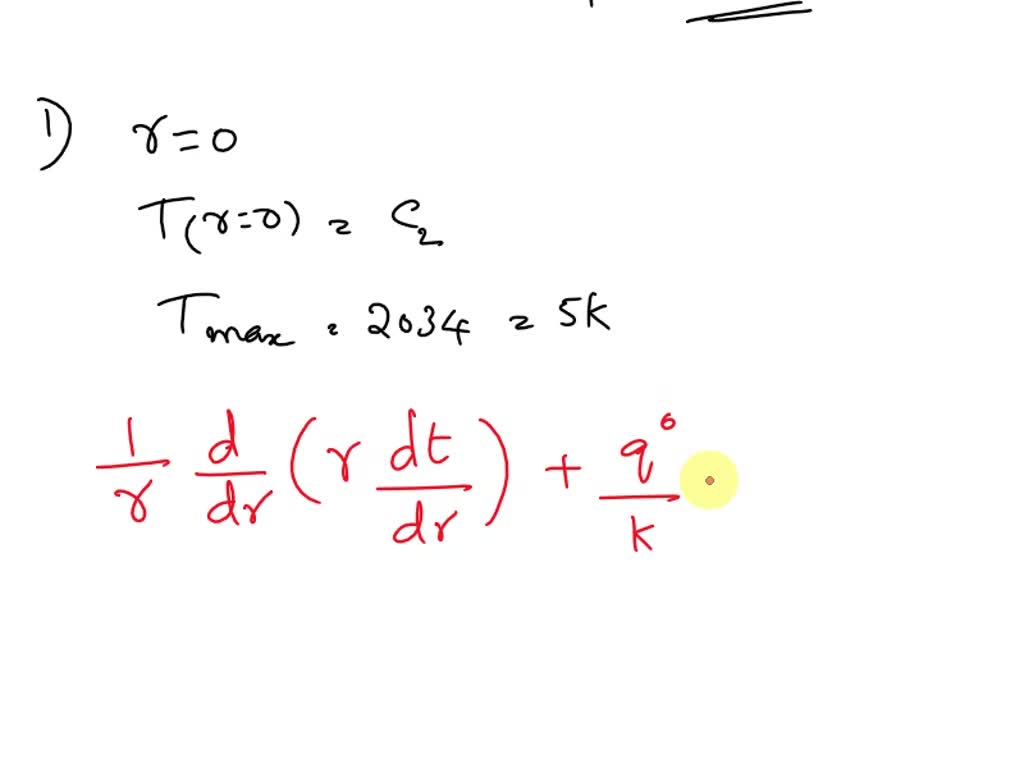 1) r = 0
T(r=0) = C₂
Tmax = 2034 = 5K
1/r d/dr (r dt/dr) + q°/k